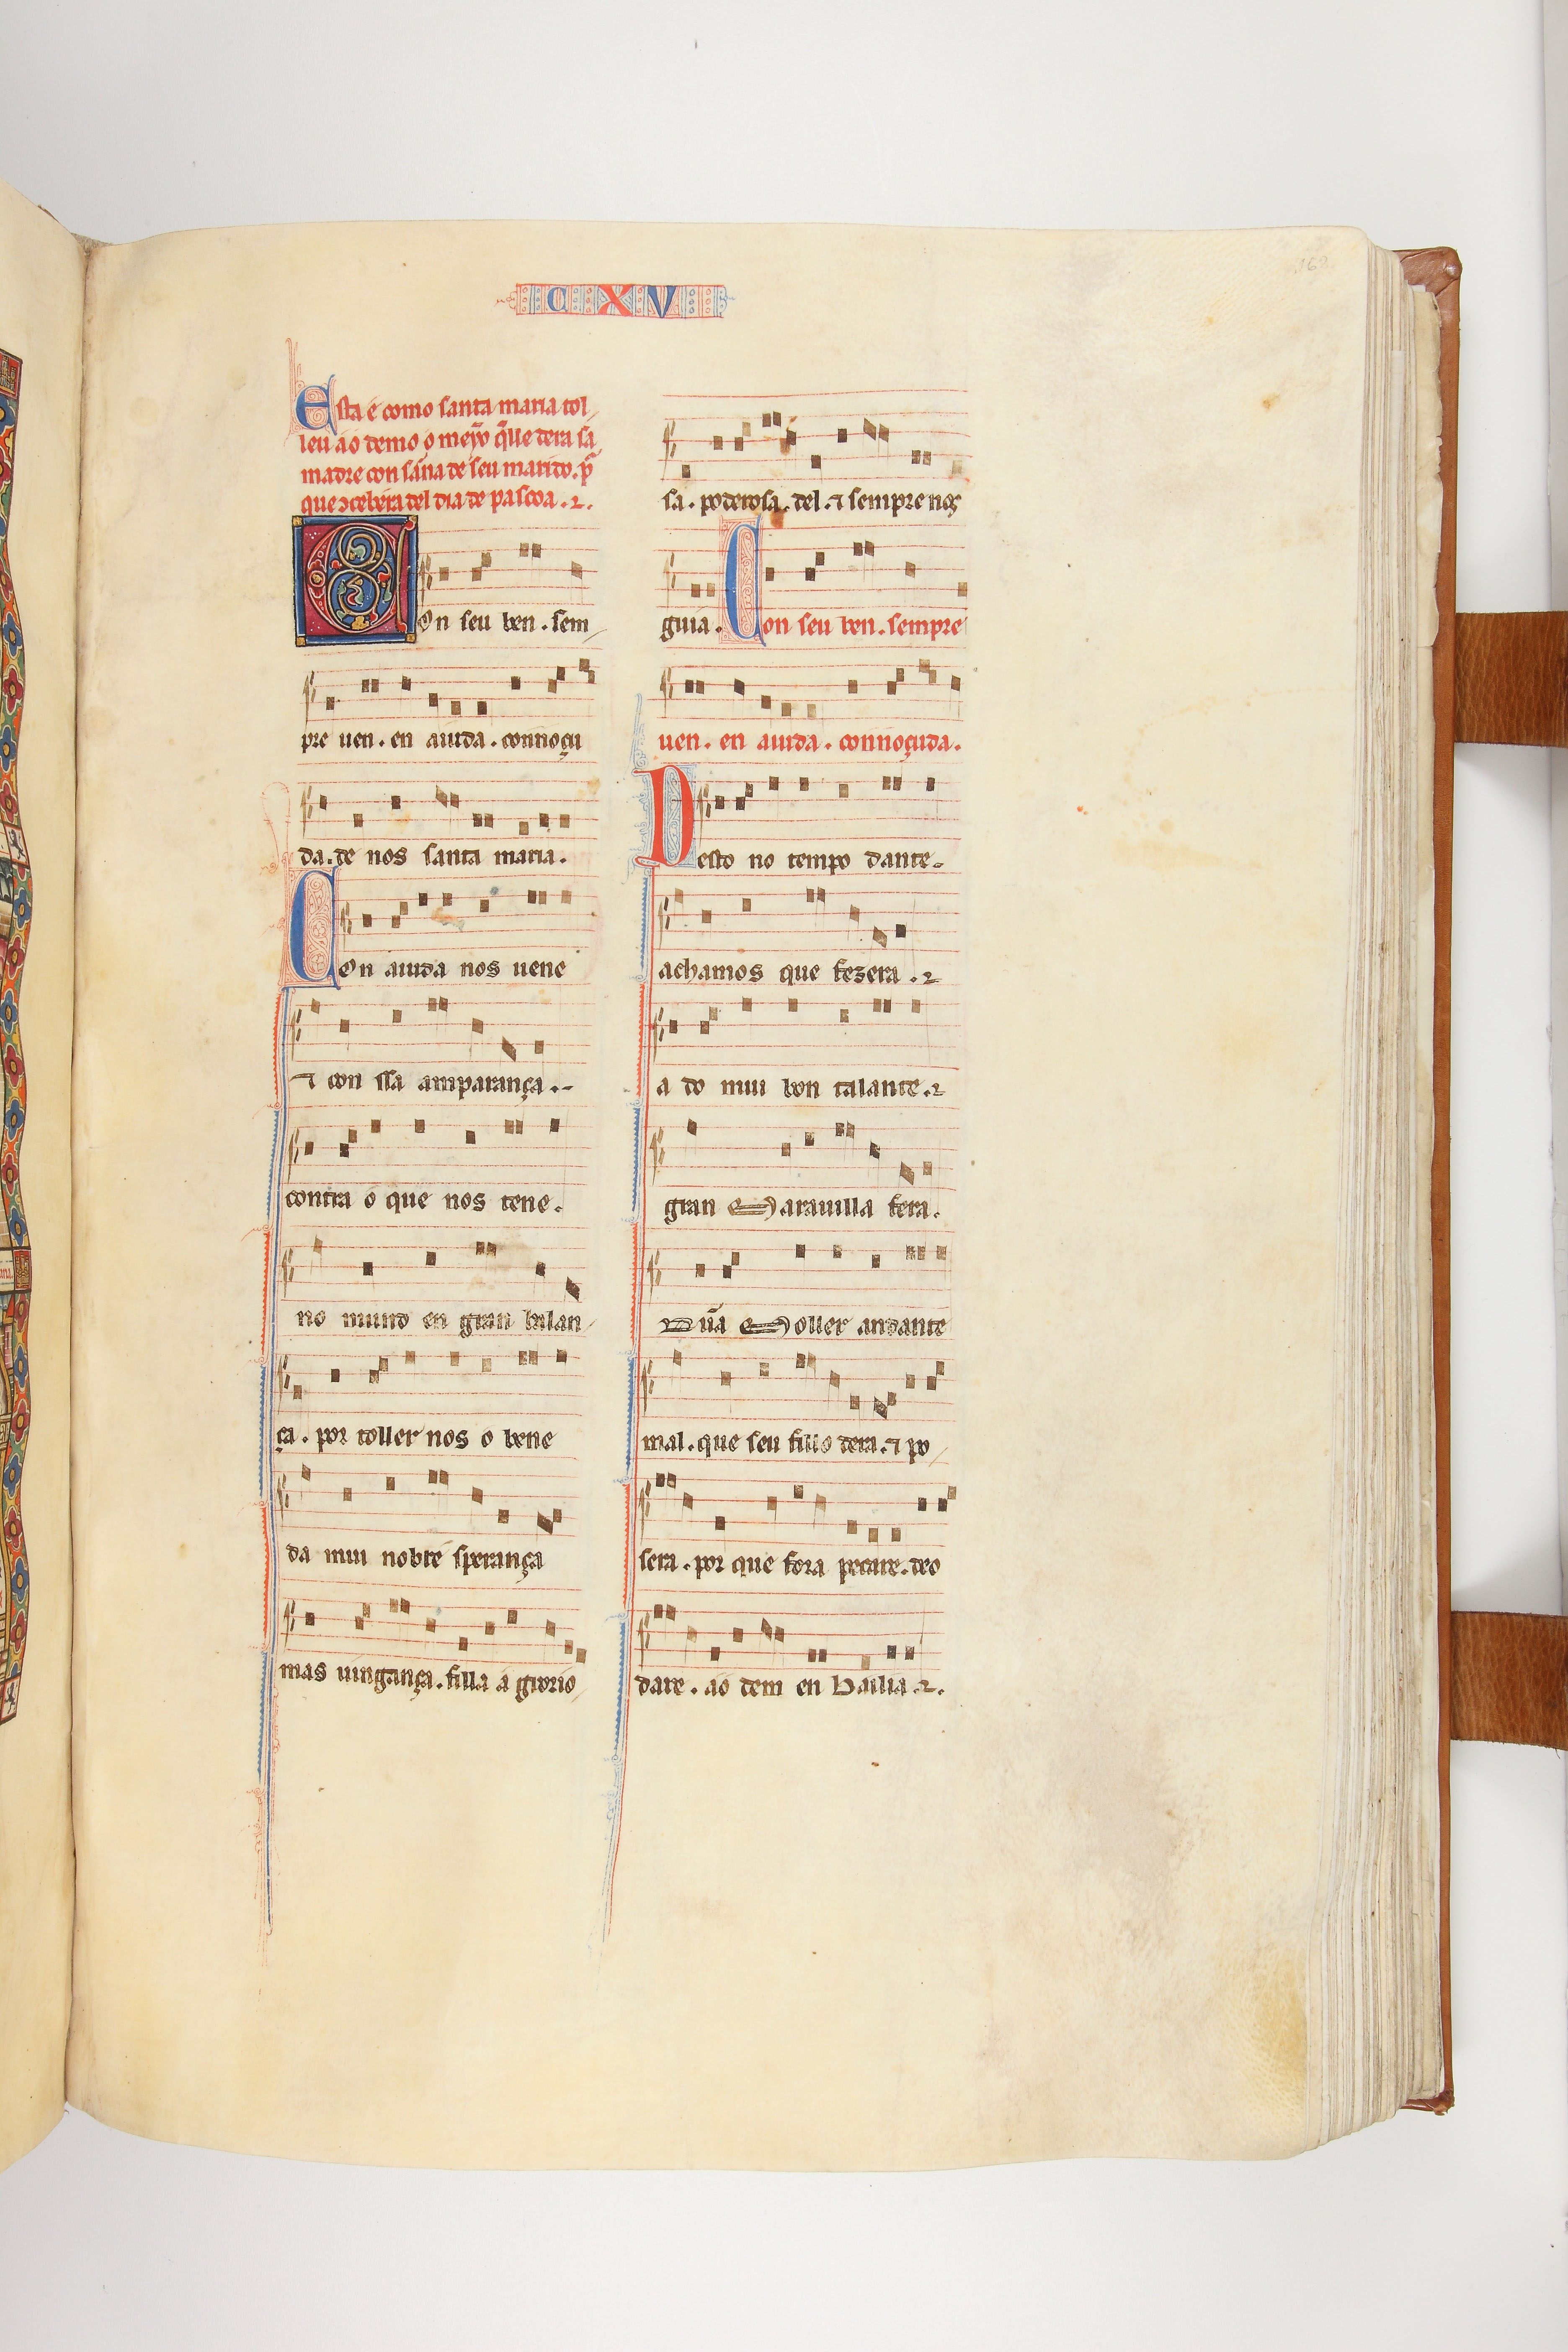 C X V
162
Esta é como santa maria tol/
leu ao demo o menỹo q̃ue dera sa
madre con saña de seu marido. p̃
que ↄcebera del dia de pascoa.
Con seu ben. sem/
pre uen. en aiuda. connoçu
da. de nos santa maria.
Con aiuda nos uene
⁊ con ssa amparança.
contra o que nos tene.
no mund en gran balan/
ça. por toller nos o bene
da mui nobre sperança
mas uingança. filla a glorio/
sa. poderosa. del. ⁊ sempre nos
guia. Con seu ben. sempre
uen. en aiuda. connoçuda.
Desto no tempo dante.
achamos que fezera.
a do mui bon talante.
gran Marauilla fera.
Dũa Moller andante
mal. que seu fillo dera. ⁊ po/
sera. por que fora pecare. deo
dare. ao dem en bailia.